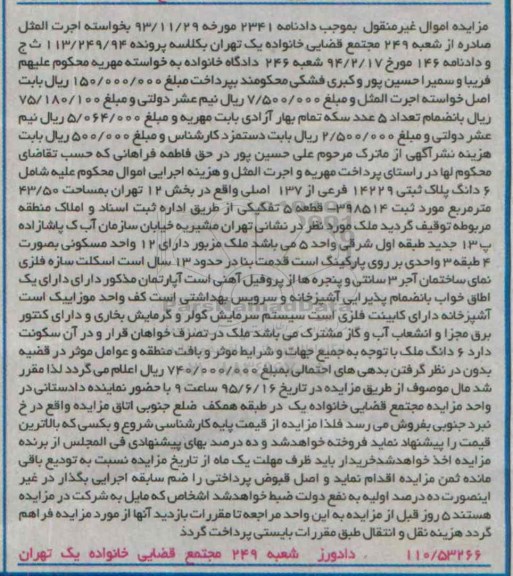 مزایده اموال غیرمنقول بموجب دادنامه ۲۳۴۱ مورخه ۹۳/۱۱/۲۹ بخواسته اجرت المثل
صادره از شعبه ۲۴۹ مجتمع قضایی خانواده یک تهران بکلاسه پرونده ۱۱۳/۲۴۹/۹۴ ث ج
و دادنامه ۱۴۶ مورخ ۹۴/۲/۱۷ شعبه ۲۴۶ دادگاه خانواده به خواسته مهریه محکوم علیهم
فریبا و سمیرا حسین پور و کبری فشکی محکومند بپرداخت مبلغ ۱۵۰/۰۰۰/۰۰۰ ریال بابت
اصل خواسته اجرت المثل و مبلغ ۷/۵۰۰/۰۰۰ ریال نیم عشر دولتی و مبلغ ۷۵/۱۸۰/۱۰۰
ریال بانضمام تعداد ۵ عدد سکه تمام بهار آزادی بابت مهریه و مبلغ ۵/۰۶۴/۰۰۰ ریال نیم
عشر دولتی و مبلغ ۲/۵۰۰/۰۰۰ ریال بابت دستمزد کارشناس و مبلغ ۵۰۰/۰۰۰ ریال بابت
هزینه نشرآگهی از ماترک مرحوم علی حسین پور در حق فاطمه فراهانی که حسب تقاضای
محکوم لها در راستای پرداخت مهریه و اجرت المثل و هزینه اجرایی اموال محکوم علیه شامل
۶ دانگ پلاک ثبتی ۱۴۲۲۹ فرعی از ۱۳۷ اصلی واقع در بخش ۱۲ تهران بمساحت ۴۳/۵۰
مترمربع مورد ثبت ۳۹۸۵۱۴ قطعه ۵ تفکیکی از طریق اداره ثبت اسناد و املاک منطقه
مربوطه توقیف گردید ملک مورد نظر در نشانی تهران مشیریه خیابان سازمان آب ک پاشازاده
پ ۱۳ جدید طبقه اول شرقی واحد ۵ می باشد ملک مزبور دارای ۱۲ واحد مسکونی بصورت
۴ طبقه ۳ واحدی بر روی پارکینگ است قدمت بنا در حدود ۱۳ سال است اسکلت سازه فلزی
نمای ساختمان آجر ۳ سانتی و پنجره ها از پروفیل آهنی است آپارتمان مذکور دارای دارای یک
اطاق خواب بانضمام پذیرایی آشپزخانه و سرویس بهداشتی است کف واحد موزاییک است
آشپزخانه دارای کابینت فلزی است سیستم سرمایش کولر و گرمایش بخاری و دارای کنتور
برق مجزا و انشعاب آب و گاز مشترک می باشد ملک در تصرف خواهان قرار و در آن سکونت
دارد ۶ دانگ ملک با توجه به جمیع جهات و شرایط موثر و بافت منطقه و عوامل موثر در قضیه
بدون در نظر گرفتن بدهی های احتمالی بمبلغ ۷۴۰/۰۰۰/۰۰۰ ریال اعلام می گردد لذا مقرر
شد مال موصوف از طریق مزایده در تاریخ ۹۵/۶/۱۶ ساعت ۹ با حضور نماینده دادستانی در
واحد مزایده مجتمع قضایی خانواده یک در طبقه همکف ضلع جنوبی اتاق مزایده واقع در خ
نبرد جنوبی بفروش می رسد فلذا مزایده از قیمت پایه کارشناسی شروع و بکسی که بالاترین
قیمت را پیشنهاد نماید فروخته خواهدشد و ده درصد بهای پیشنهادی فی المجلس از برنده
مزایده اخذ خواهدشدخریدار باید ظرف مهلت یک ماه از تاریخ مزایده نسبت به تودیع باقی
مانده ثمن مزایده اقدام نماید و اصل قبوض پرداختی را ضم سابقه اجرایی بگذار در غیر
اینصورت ده درصد اولیه به نفع دولت ضبط خواهدشد اشخاص که مایل به شرکت در مزایده
هستند ۵ روز قبل از مزایده به این واحد مراجعه تا مقررات بازدید آنها از مورد مزایده فراهم
گردد هزینه نقل و انتقال طبق مقررات بایستی پرداخت گردد
۱۱۰/۵۳۲۶۶ دادورز شعبه ۲۴۹ مجتمع قضایی خانواده یک تهران